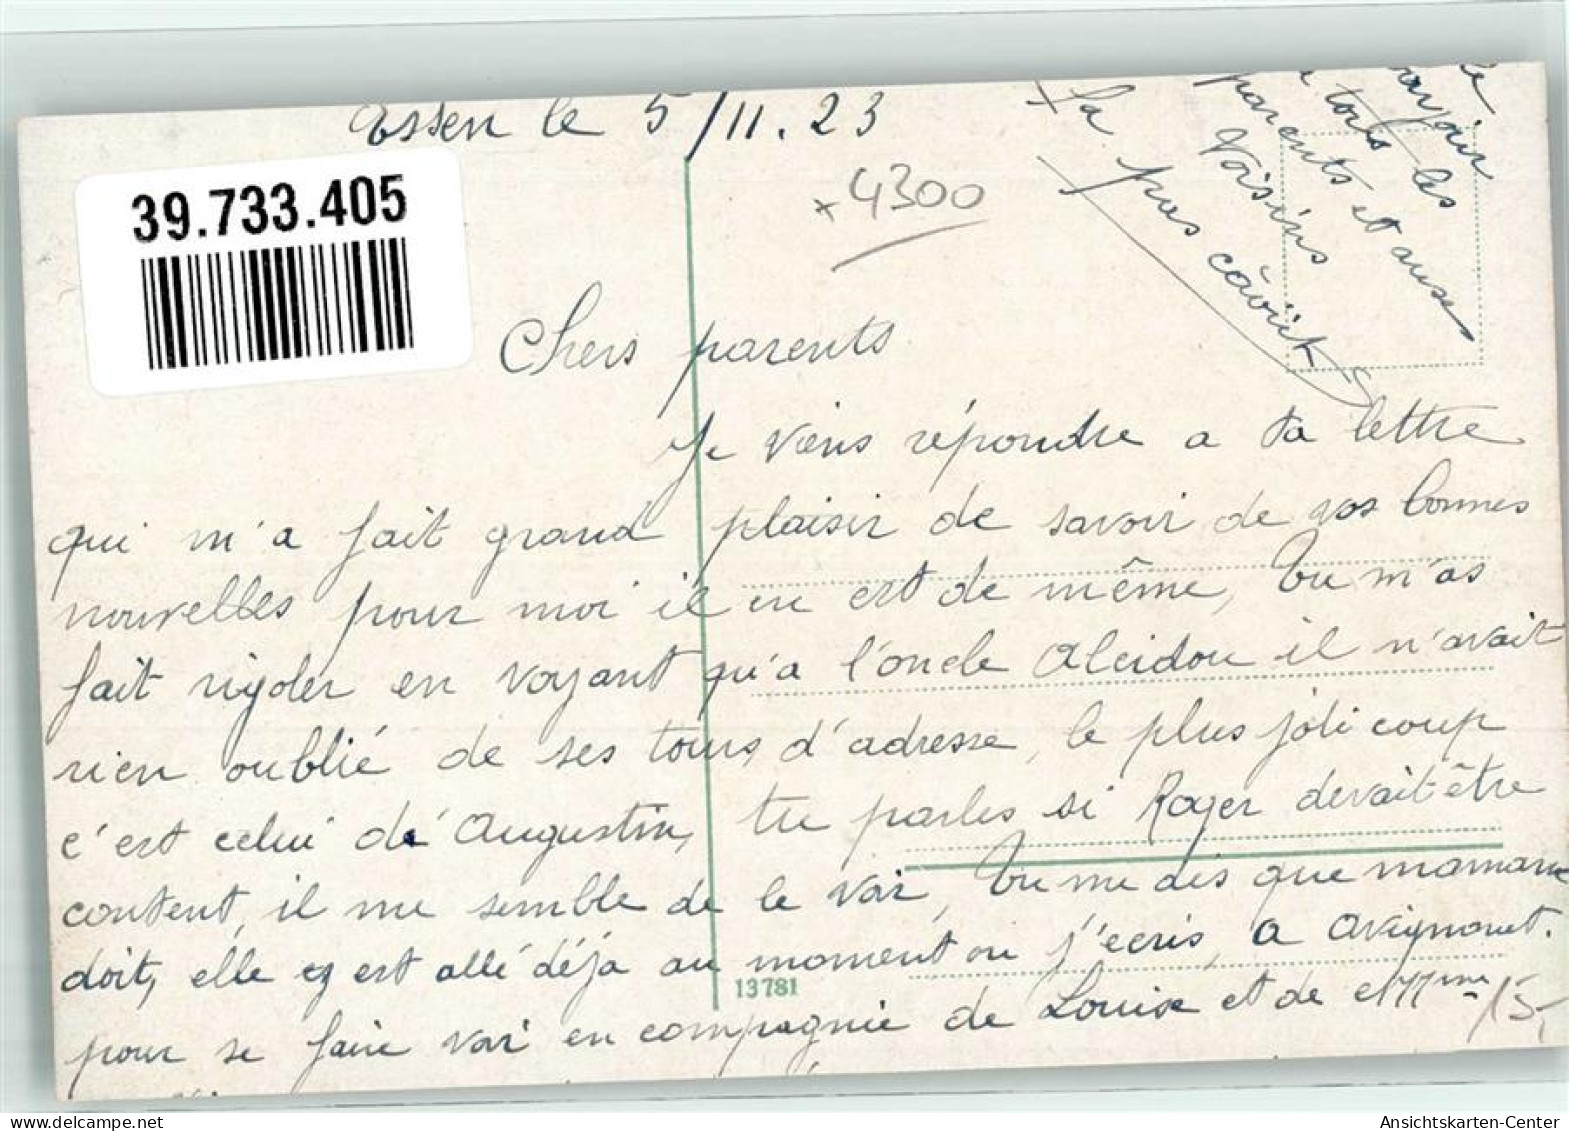 Essen le 5/11.23
39.733.405
x 4300
Chers parents
Je viens répondre a ta lettre
qui m'a fait grand plaisir de savoir de vos bonnes
nouvelles pour moi il en est de même, tu m'as
fait rigoler en voyant qu'a l'oncle Alcidou il n'avait
rien oublié de ses tours d'adresse, le plus joli coup
c'est celui de Augustin, tu parles si Roger devait être
content, il me semble de le voir, tu me dis que maman
doit, elle est allé déja au moment ou j'ecris, a Avignonet.
pour se faire voir en compagnie de Louise et de Mme
15,-
13781
la
pas
bonjoir
a tous les
parents et aux
Voisins
oldthing.de
Ansichtskarten-Center